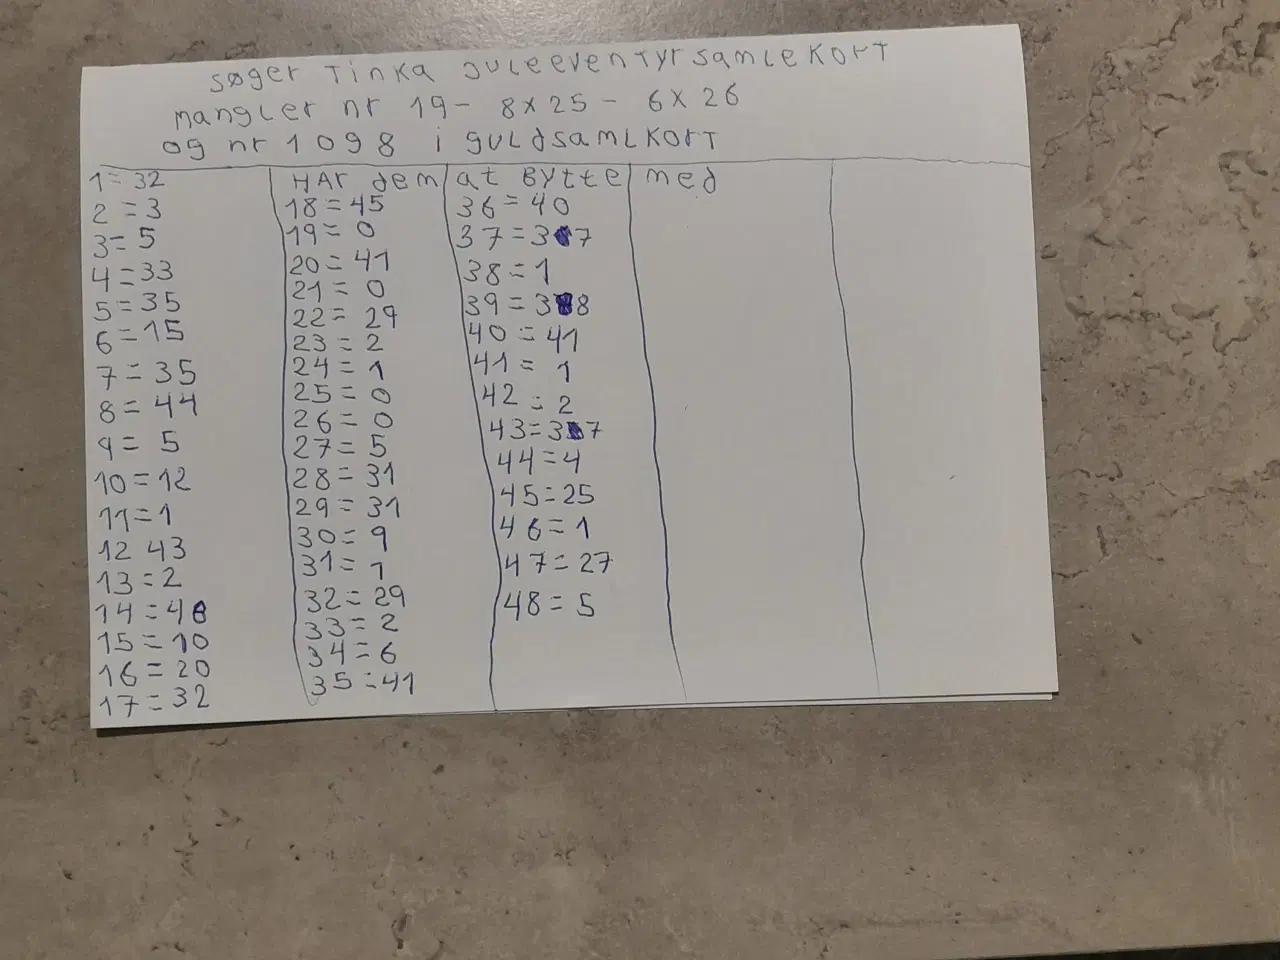 søger Tinka juleeventyrsamlekort
mangler nr 19 - 8x25 - 6x26
og nr 1098 i guldsamlkort
Har dem at bytte med
1=32
2=3
3=5
4=33
5=35
6=15
7=35
8=44
9=5
10=12
11=1
12 43
13=2
14=40
15=10
16=20
17=32
18=45
19=0
20=41
21=0
22=29
23=2
24=1
25=0
26=0
27=5
28=31
29=31
30=9
31=1
32=29
33=2
34=6
35=41
36=40
37=37
38=1
39=38
40=41
41=1
42=2
43=37
44=4
45=25
46=1
47=27
48=5